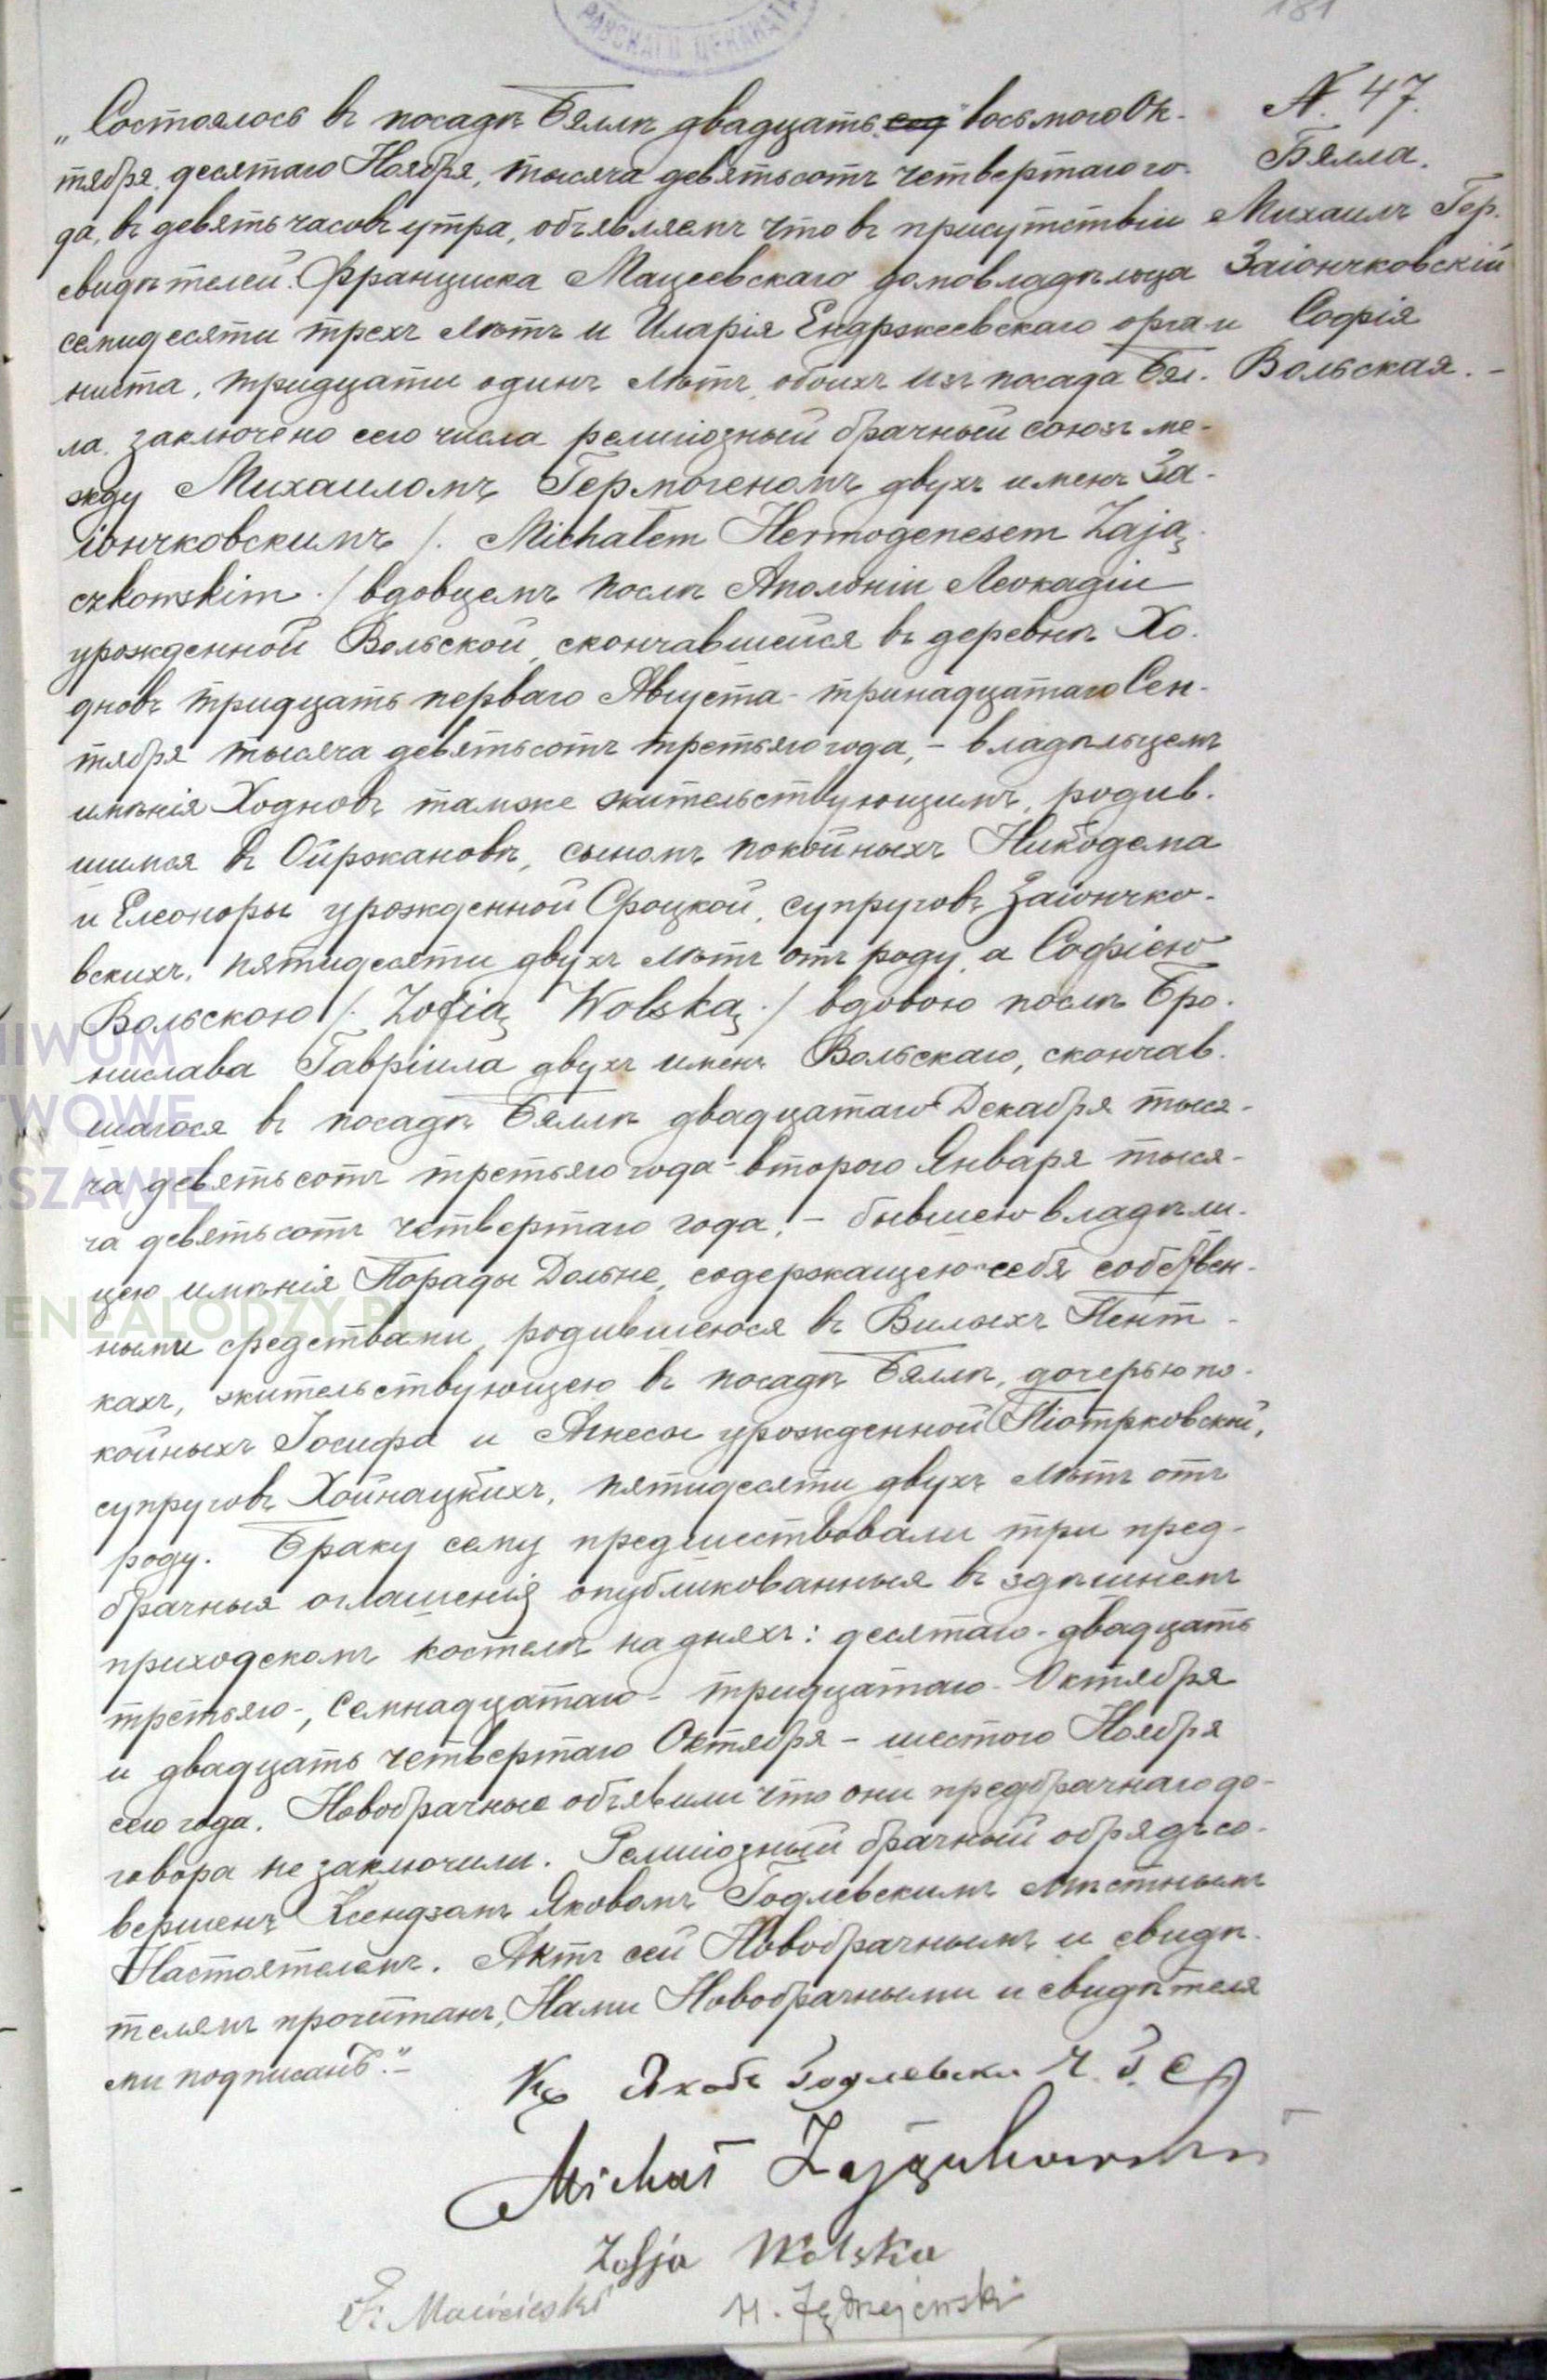 181
РАВСКАГО ДЕКАНАТА
N. 47.
Бялла.
Михаилъ Гер.
Заіончковскій
и Софія
Вольская. -
„Состоялось въ посадѣ Бяллѣ двадцать восьмого Ок-
тября, десятаго Ноября, тысяча девятьсотъ четвертаго го-
да, въ девять часовъ утра, объявляемъ что въ присутствіи
свидѣтелей: Франциска Мацеевскаго домовладѣльца
семидесяти трехъ лѣтъ и Иларія Ендржеевскаго орга-
ниста, тридцати одинъ лѣтъ, обоихъ изъ посада Бял-
ла, заключено сего числа религіозный брачный союзъ ме-
жду Михаиломъ Гермогеномъ двухъ именъ За-
іончковскимъ /. Michałem Hermogenesem Zają-
czkowskim ./ вдовцемъ послѣ Аполоніи Леокадіи
урожденной Вольской, скончавшейся въ деревнѣ Хо-
дновъ тридцать перваго Августа - тринадцатаго Сен-
тября тысяча девятьсотъ третьяго года, - владѣльцемъ
имѣнія Ходновъ тамже жительствующимъ, родив-
шимся въ Ойржановѣ, сыномъ покойныхъ Никодема
и Елеоноры урожденной Сроцкой, супруговъ Заіончко-
вскихъ, пятидесяти двухъ лѣтъ отъ роду, а Софіею
Вольскою /. Zofią Wolską ./ вдовою послѣ Бро-
нислава Гавріила двухъ именъ Вольскаго, скончав-
шагося въ посадѣ Бяллѣ двадцатаго Декабря тыся-
ча девятьсотъ третьяго года - второго Января тыся-
ча девятьсотъ четвертаго года, - бывшею владѣли-
цею имѣнія Порады Дольне, содержащею себя собствен-
ными средствами, родившеюся въ Вилчихъ Пент-
кахъ, жительствующею въ посадѣ Бяллѣ, дочерью по-
койныхъ Іосифа и Агнесы урожденной Піотрковской,
супруговъ Хойнацкихъ, пятидесяти двухъ лѣтъ отъ
роду. Браку сему предшествовали три пред-
брачныя оглашенія опубликованныя въ здѣшнемъ
приходскомъ костелѣ на дняхъ: десятаго - двадцать
третьяго -, семнадцатаго - тридцатаго - Октября
и двадцать четвертаго Октября - шестого Ноября
сего года. Новобрачные объявили что они предбрачнаго до-
говора не заключили. Религіозный брачный обрядъ со-
вершенъ Ксендзомъ Яковомъ Годлевскимъ мѣстнымъ
Настоятелемъ. Актъ сей Новобрачнымъ и свидѣ-
телямъ прочитанъ, Нами Новобрачными и свидѣтеля
ми подписанъ." -
Кс Якобъ Годлевски
Michał Zajączkowski
Zofja Wolska
F. Maciejeski H. Jędrzejewski